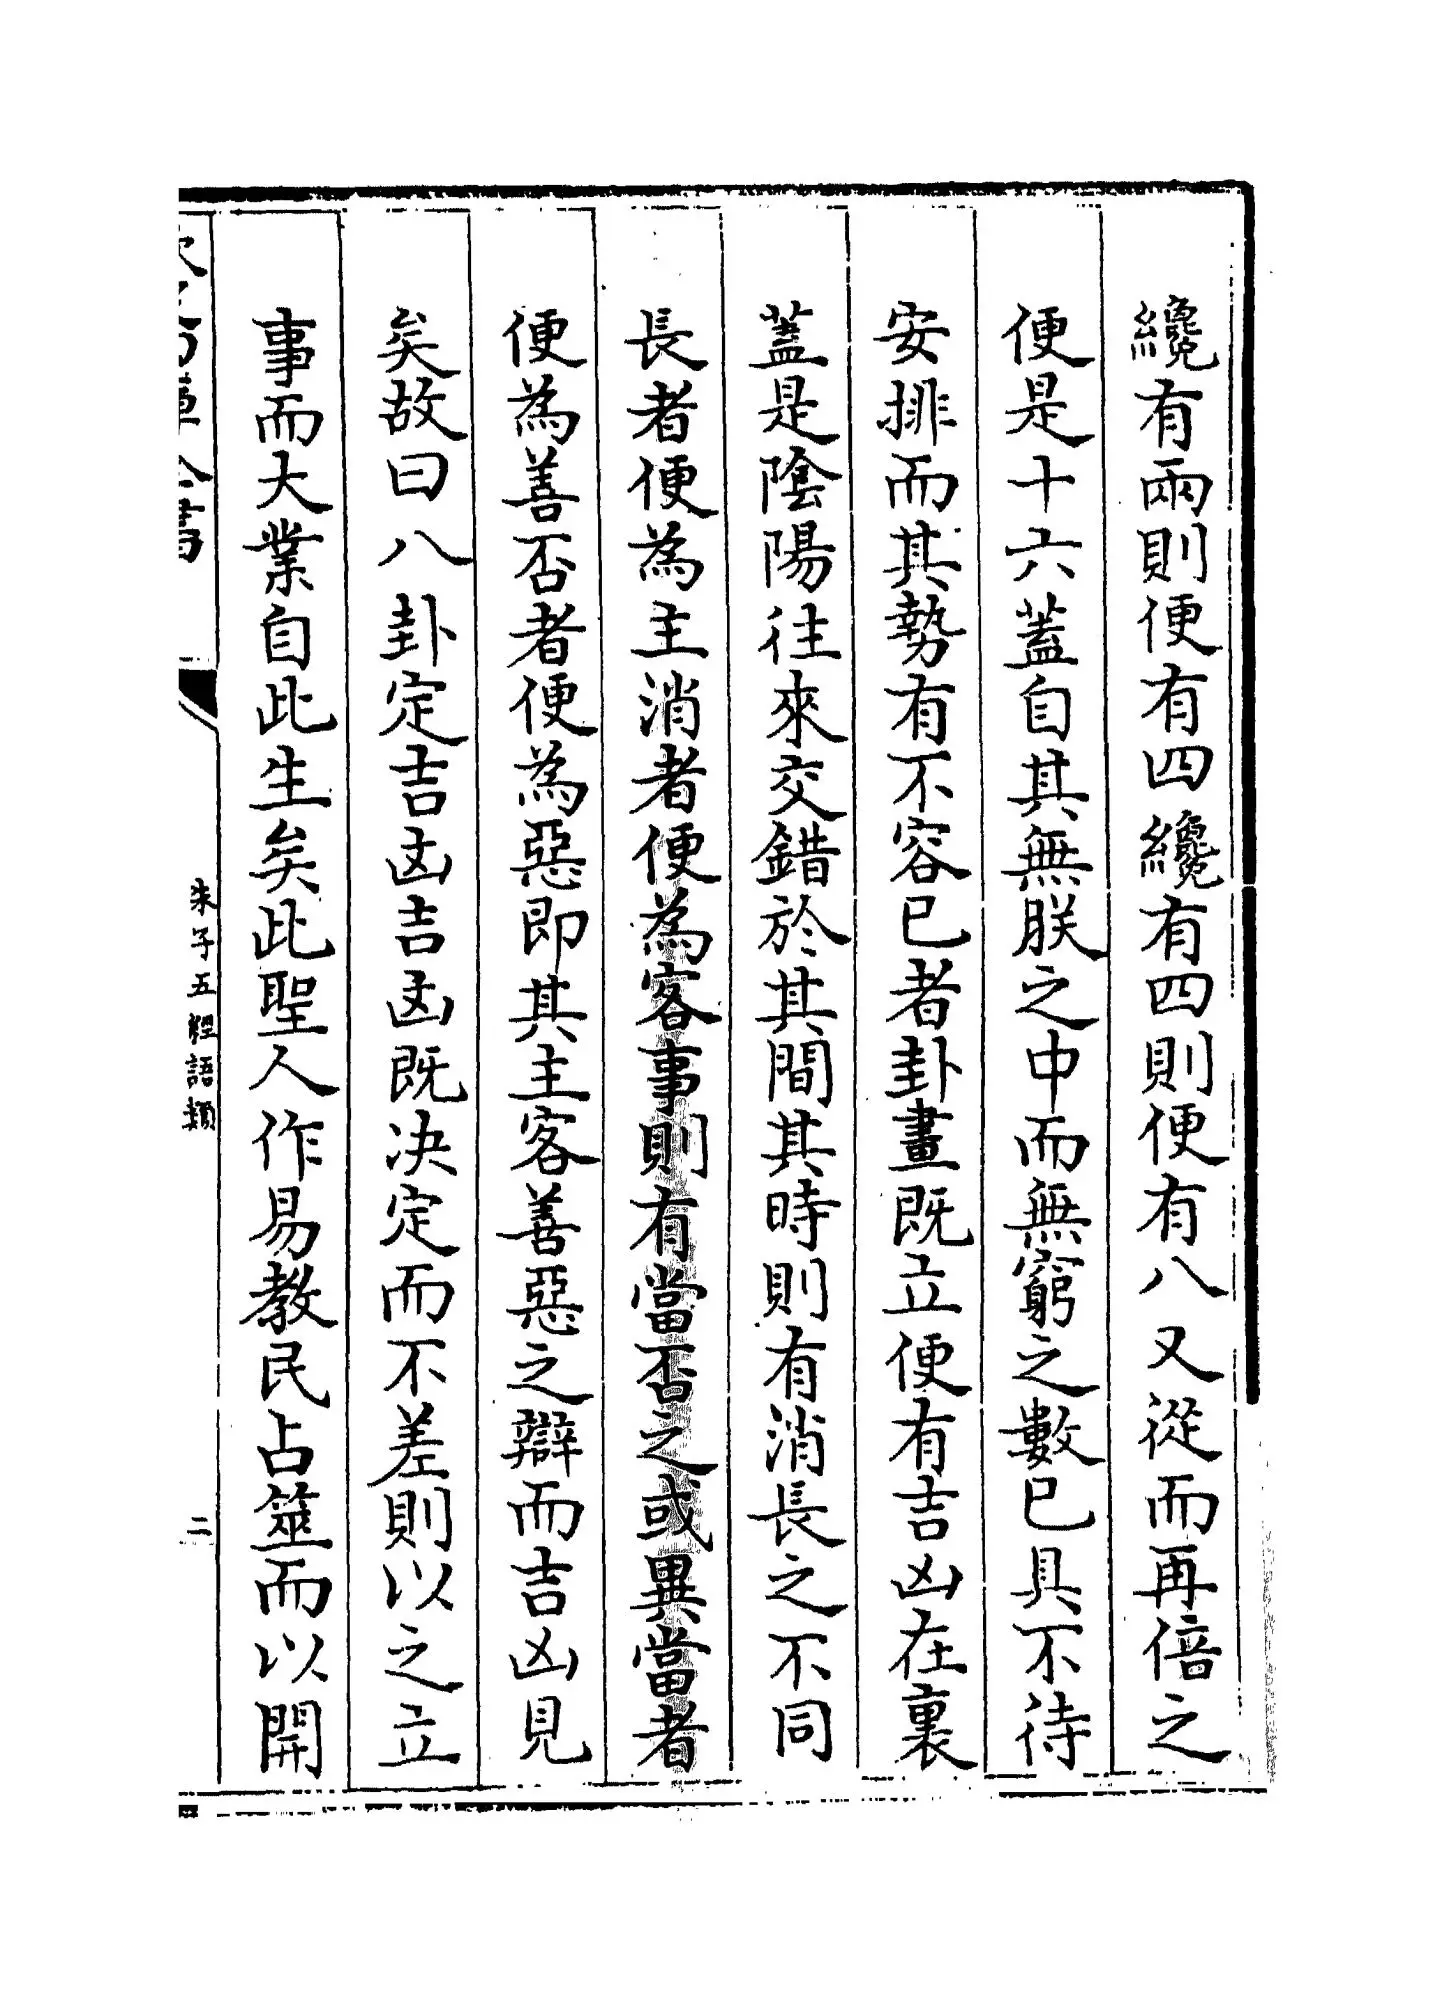 纔有兩則便有四纔有四則便有八又從而再倍之
便是十六蓋自其無朕之中而無窮之數已具不待
安排而其勢有不容已者卦畫既立便有吉凶在裏
蓋是陰陽往來交錯於其間其時則有消長之不同
長者便為主消者便為客事則有當否之或異當者
便為善否者便為惡即其主客善惡之辯而吉凶見
矣故曰八卦定吉凶吉凶既决定而不差則以之立
事而大業自此生矣此聖人作易教民占筮而以開
朱子五經語類
二